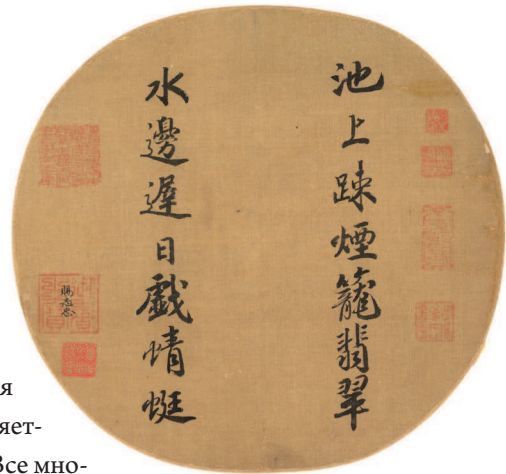 池上踈煙籠翡翠
水邊遲日戲蜻蜓
я
яет-
Все мно-